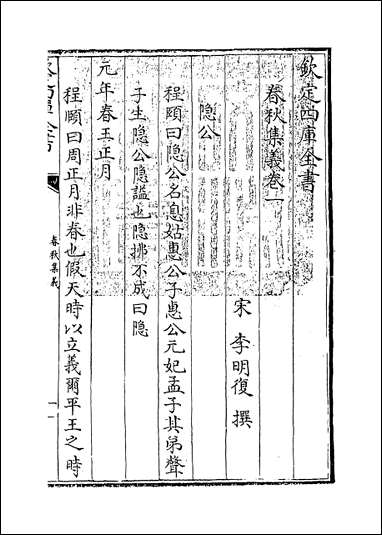 欽定四庫全書
春秋集義卷一
宋 李明復 撰
隱公
程頤曰隱公名息姑惠公子惠公元妃孟子其弟聲
子生隱公隱諡也隱拂不成曰隱
元年春王正月
程頤曰周正月非春也假天時以立義爾平王之時
春秋集義
一